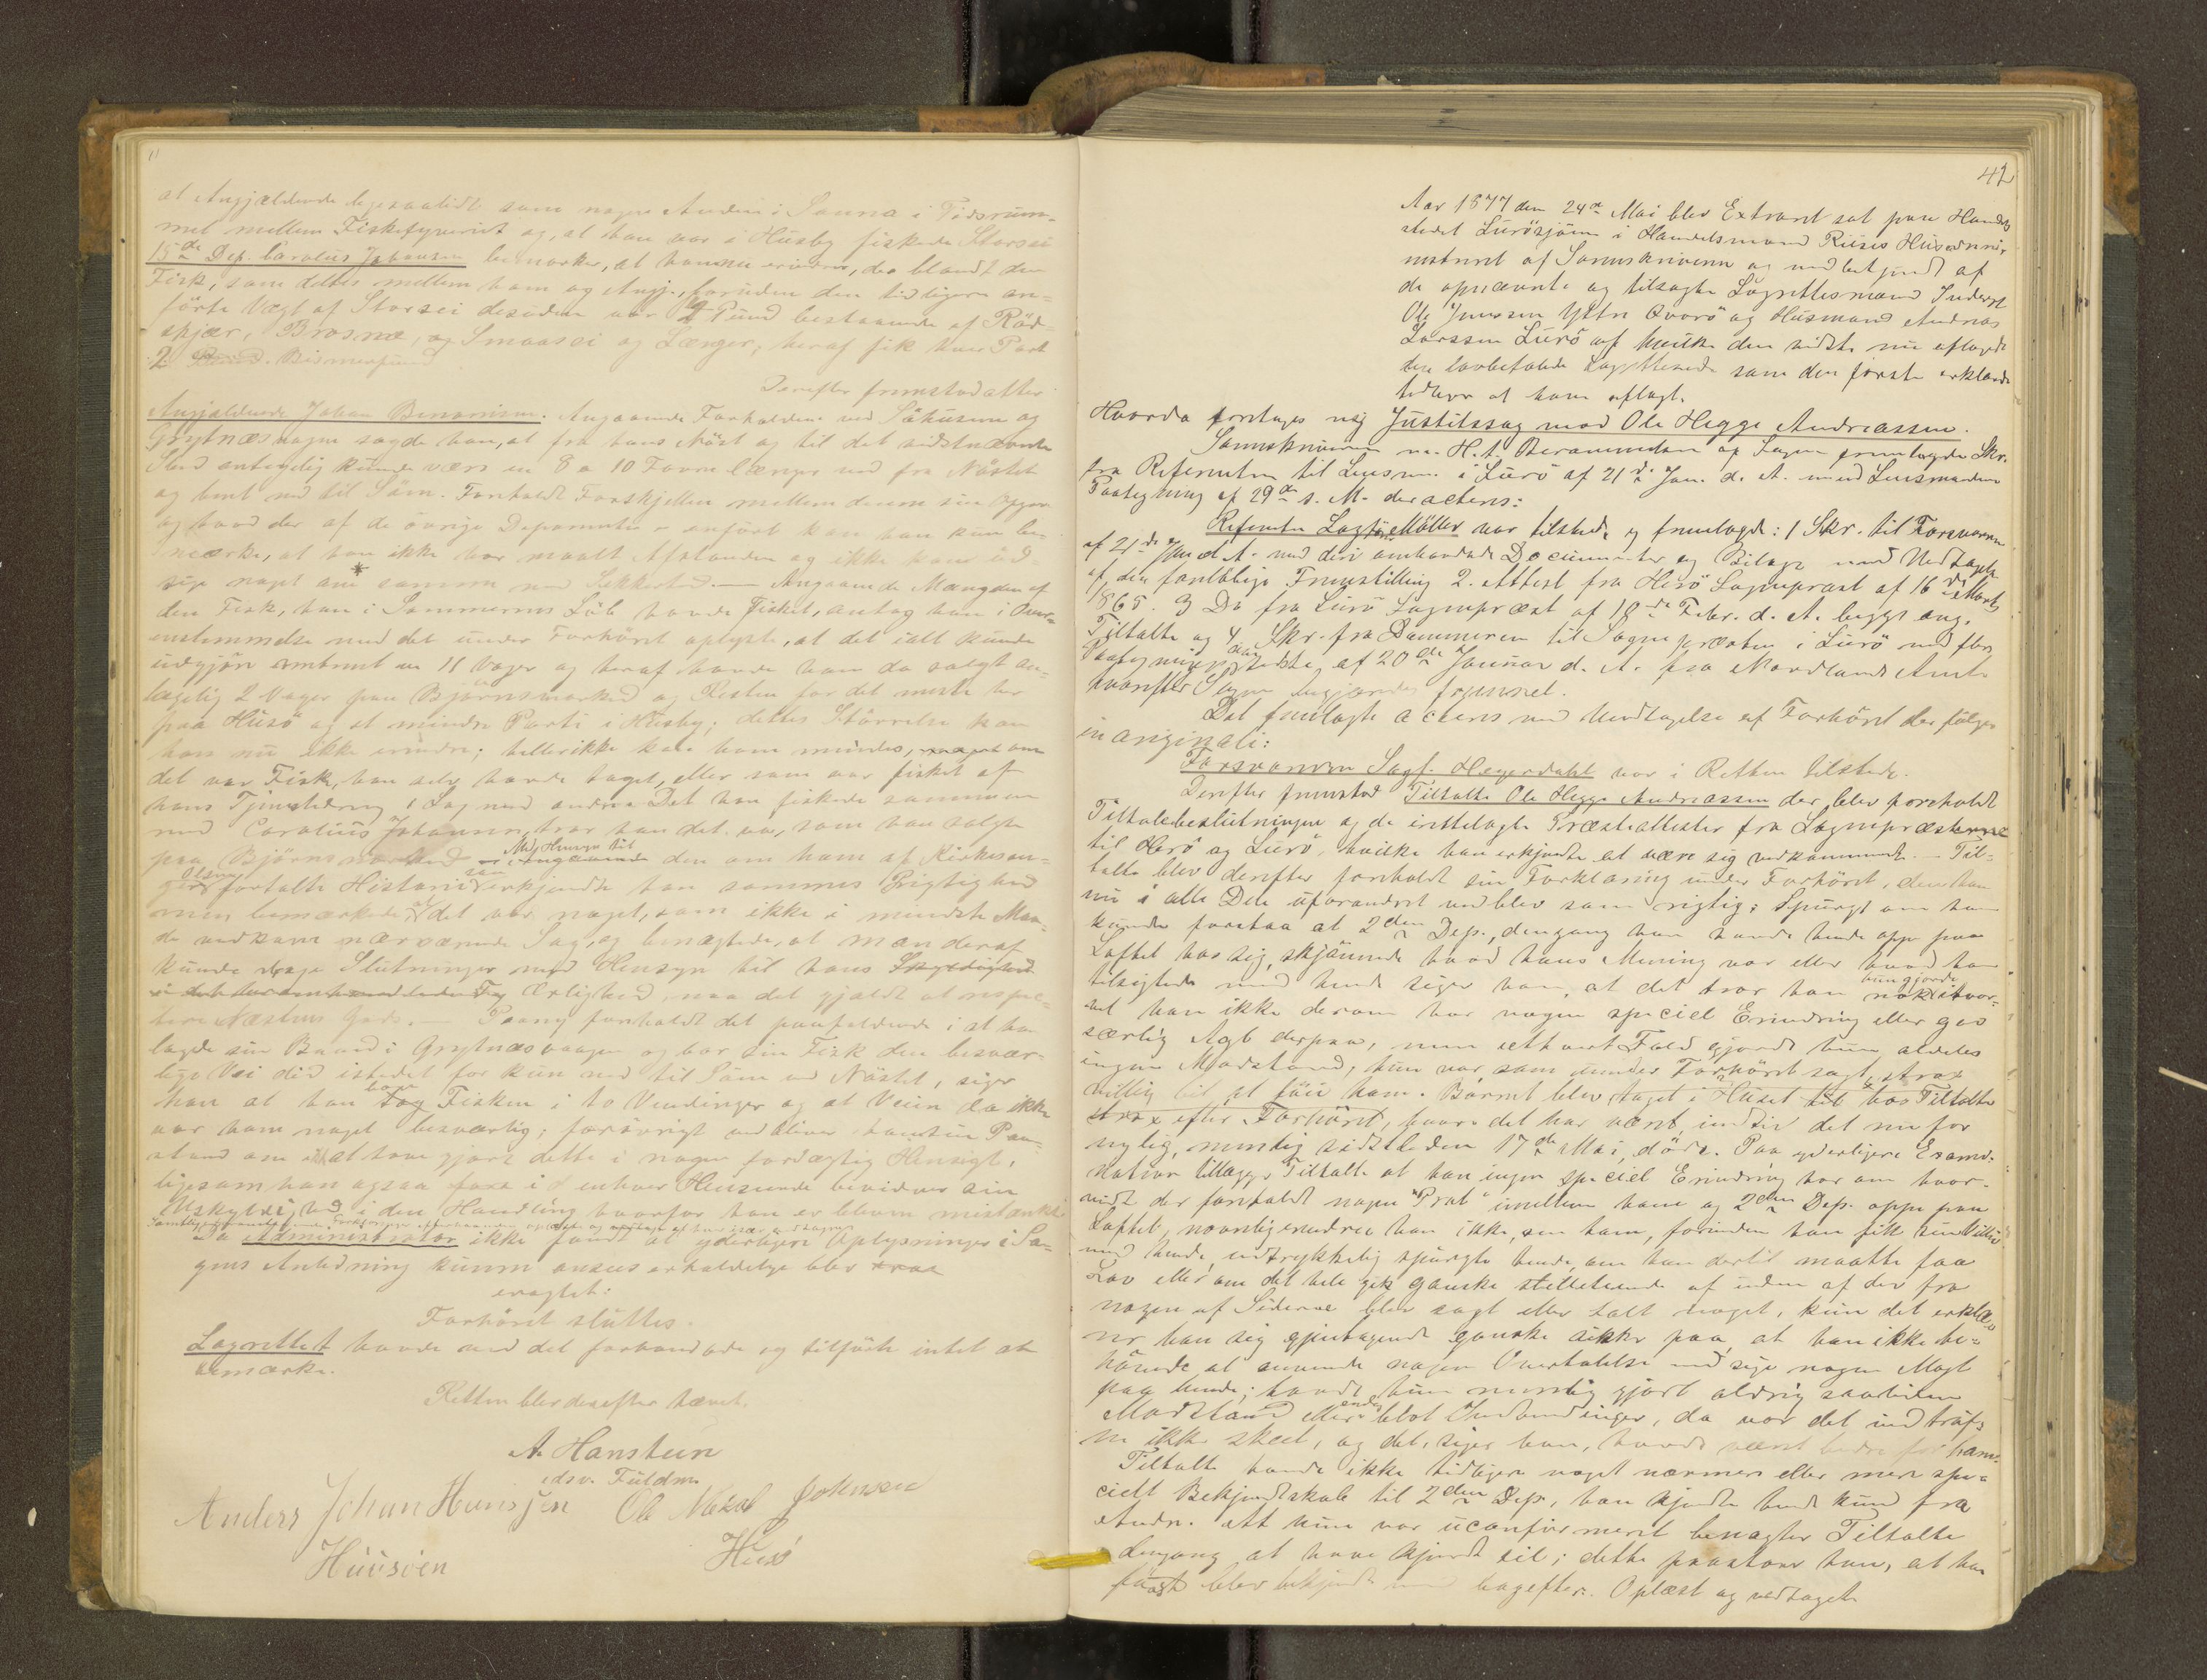 at Angjældende ligesaalidt som nogen Anden i Sanna i Tidsrum-
met mellem Fiskefyreriet og, at han var i Husby fiskede Storsei
15de Dep. Carolius Johansen bemærker, at han nu erindrer, der blandt den
Fisk, som deltes mellem ham og Angj., foruden den tidligere an-
førte Vægt af Storsei desuden var 2 Pund bestaaende af Rød-
spjær, Brosme, og Smaasei og Længer, heraf fik hver Part
2 Bismerpund
Derefter fremstod atter
Angjældende Johan Benoni. Angaaende Forholdene ved Söhusene og
Grytnæsvagen sagde han, at fra hans Nöst og til det sidstnævnte
Sted antagelig kunde være en 8 a 10 Favne længer end fra Nöstet
og bent ned til Söen. Forholdt Forskjellen mellem denne sin Opgave
og hvad der af de övrige Deponenter er anfört kan han kun be-
mærke, at han ikke har maalt Afstanden og ikke kan ud-
sige noget om samme med Sikkerhed. — Angaaende Mængden af
den Fisk, han i Sommerens Löb havde fisket, antog han i Over-
ensstemmelse med det under Forhöret oplyste, at det ialt kunde
udgjöre omtrent en 11 Voger og heraf havde han da solgt an-
tagelig 2 Voger paa Bjørnsmarked og Resten for det meste her
paa Husö og et mindre Parti i Husby; dettes Störrelse kan
han nu ikke erindre; hellerikke kan han mindes, om
det var Fisk, han selv havde taget, eller som var fisket af
hans Tjenestedreng i Lag med andre. Det han fiskede sammen
med Carolius Johansen, tror han det var, som han solgte
paa Bjørnsmarked Med Hensyn til den om ham af Kirkesan-
ger Olsen fortalte Historie saa erkjendte han sammes Rigtighed
men bemærkede at det var noget, som ikke i mindste Maa-
de vedkom nærværende Sag, og benægtede, at man deraf
kunde drage Slutninger med Hensyn til hans
Ærlighed, naar det gjaldt at respec-
tere Næstens Gods. — Paany forholdt det paafaldende i at han
lagde sin Baad i Grytnæsvaagen og bar sin Fisk den besvær-
lige Vei did istedet for kun ned til Söen ved Nöstet, siger
han at han bar Fisken i to Vendinger og at Veien da ikke
var ham noget besværlig; forövrigt vedbliver han sin Paa-
stand om ikke at have gjort dette i nogen fordægtig Hensigt,
ligesom han ogsaa forøvrigt i enhver Henseende bevidner sin
Uskyldighed i den Handling hvorfor han er bleven mistænkt
Da Administrator ikke fandt at yderligere Oplysninger i Sa-
gens Anledning kunne ansees erholdelige blev
eragtet:
Forhöret sluttes.
Lagrettet havde ved det forhandlede og tilförte intet at
bemærke.
Retten blev derefter hævet.
A. Hansteen
edsv. Fuldm.
Anders Johan Hansjen Ole Johnsen
Huusöen Husö
42
Aar 1877 den 24de Mai blev Extraret sat paa Handels-
stedet Lurösjöen i Handelsmand Riises Huse
nistreret af Sorenskriveren og medbetjent af
de opnævnte og tilsagte Lagrettesmænd Inderst
Ole Jensen Yttre Qvarö og Husmand Andreas
Larssen Lurö af hvilke den sidste nu aflagde
den lovbefalede Lagrettesed som den første erklærede
tidligere at have aflagt.
Hvorda foretoges og Justitssag mod Ole Hegge Andreassen.
Sorenskriveren m. H. t. Berammelsen af Sagen fremlagde Skr.
fra Referenten til Lensm. i Lurö af 21de Jan. d. A. med Lensmandens
Paategning af 29de s. M. der acteres:
Referenten Sagf. Möller var tilstede og fremlagde: 1 Skr. til Forsvareren
af 21de d. A. med deri omhandlede Documenter og Bilage med Undtagelse
af den foreløbige Fremstilling 2. Attest fra Herö Sogneprest af 16de Marts
1865. 3 Do fra Lurö Sogneprest af 18de Febr. d. A. begge ang.
Tiltalte og 4 Skr. fra Dommeren til Sognepresten i Lurö med flere
Paategninger, den sidste af 20de Januar d. A. fra Nordlands Amt
hvorefter Sagen begjæredes fremmet.
Det fremlagte acteres med Undtagelse af Forhöret der fölger
in originali:
Forsvareren Sagf. Hegerdahl var i Retten tilstede.
Derefter fremstod Tiltalte Ole Hegge Andreassen der blev foreholdt
Tiltalebeslutningen og de irettelagte Præsteattester fra Sognepræsterne
til Herö og Lurö, hvilke han erkjendte at være sig vedkommende. — Til-
talte blev derefter foreholdt sin Forklaring under Forhöret, den han
nu i alle Dele uforandret vedblev som rigtig; Spurgt om han
kunde forstaa at 2den Dep., dengang han havde hende oppe paa
Loftet hos sig, skjönnede hvad hans Mening var eller hvad han
tilsigtede med hende siger han, at det tror han nok hun gjorde, ihvor-
vel han ikke derom har nogen speciel Erindring eller gav
særlig Agt derpaa, men iethvert Fald gjorde hun aldeles
ingen Modstand, hun var som under Forhöret sagt, strax
villig til at föie ham. Barnet blev taget i Huset hos Tiltalte
strax efter Forhöret, hvor det har været, indtil det nu for
nylig, nemlig sidstleden 17de Mai, döde. Paa yderligere Exami-
nation tillægger Tiltalte at han ingen speciel Erindring har om hvor-
vidt der forefaldt nogen "Prat" imellem ham og 2den Dep. oppe paa
Loftet, navnlig erindrer han ikke, om han, forinden han fik sin Villie
med hende, udtrykkelig spurgte hende, om han dertil maatte faa
Lov eller om det hele gik ganske stilletiende af uden at der fra
nogen af Siderne blev sagt eller talt noget, kun det erklæ-
rer han sig gjentagende ganske sikker paa, at han ikke be-
hövede at anvende nogen Overtalelse end sige nogen Magt
paa hende; havde hun nemlig gjort aldrig saaliden
Modstand eller endog blot Indvendinger, da var det indtrufne
ikke skeet, og det, siger han, havde været bedre for ham.
Tiltalte havde ikke tidligere noget nærmere eller mere spe-
cielt Bekjendtskab til 2den Dep., han kjendte hende kun fra
Andre. Att hun var uconfirmeret benægter Tiltalte
dengang at have kjendt til; dette paastaar han, at han
først blev bekjendt med bagefter. Oplæst og vedtaget